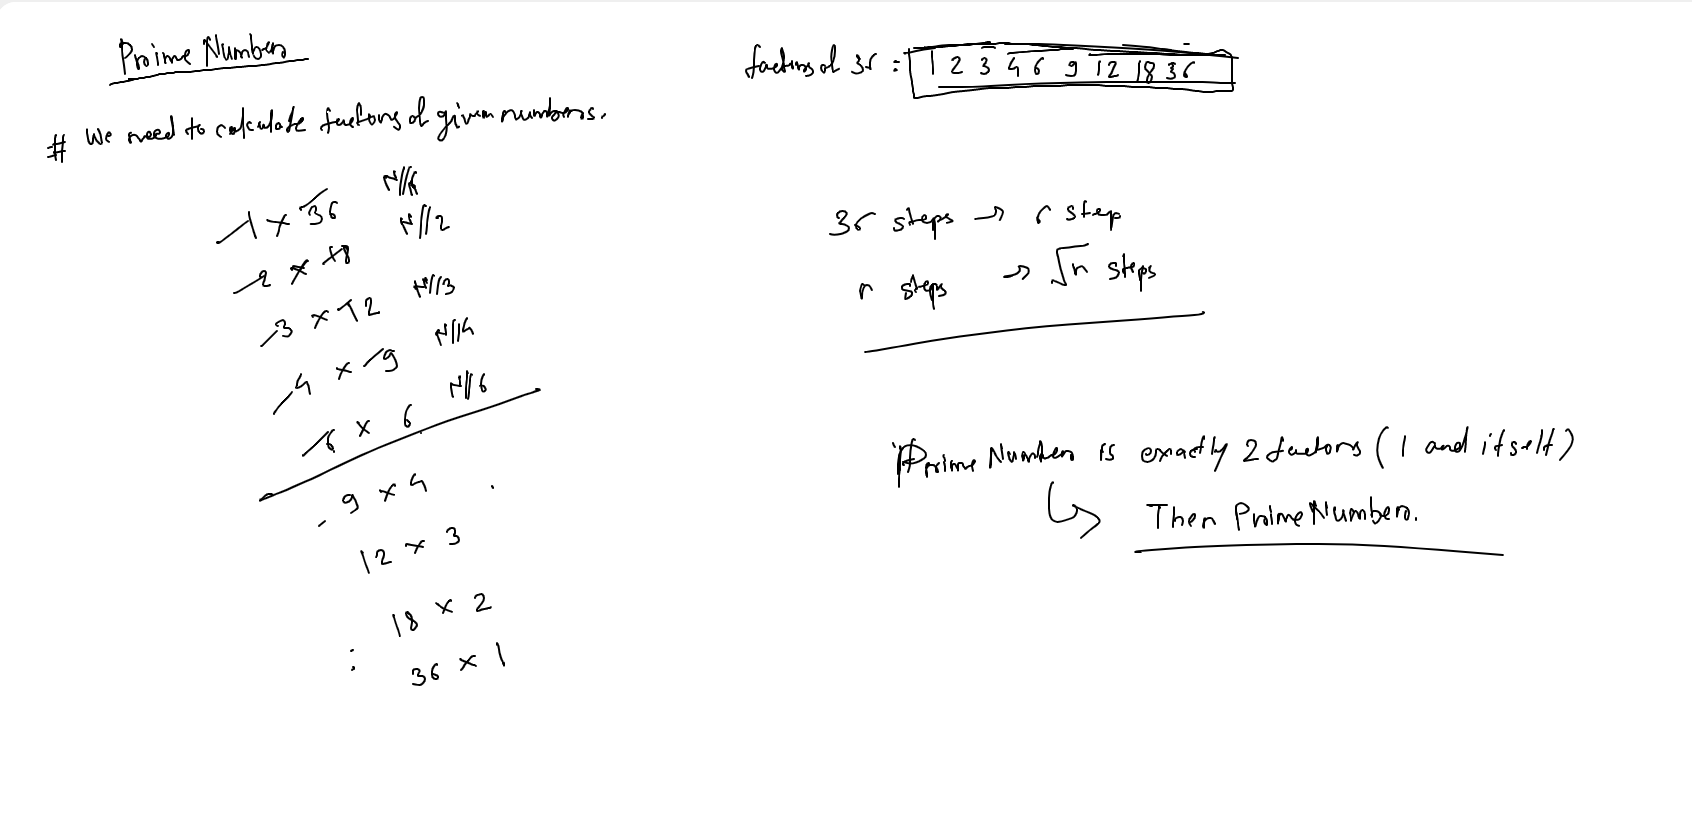 Prime Numbers
# We need to calculate factors of given numbers.
1 x 36 N//1
2 x 18 N//2
3 x 12 N//3
4 x 9 N//4
6 x 6 N//6
9 x 4
12 x 3
18 x 2
36 x 1
factors of 36 : 1 2 3 4 6 9 12 18 36
36 steps → 6 step
n steps → √n steps
Prime Number is exactly 2 factors ( 1 and itself )
Then Prime Numbers.